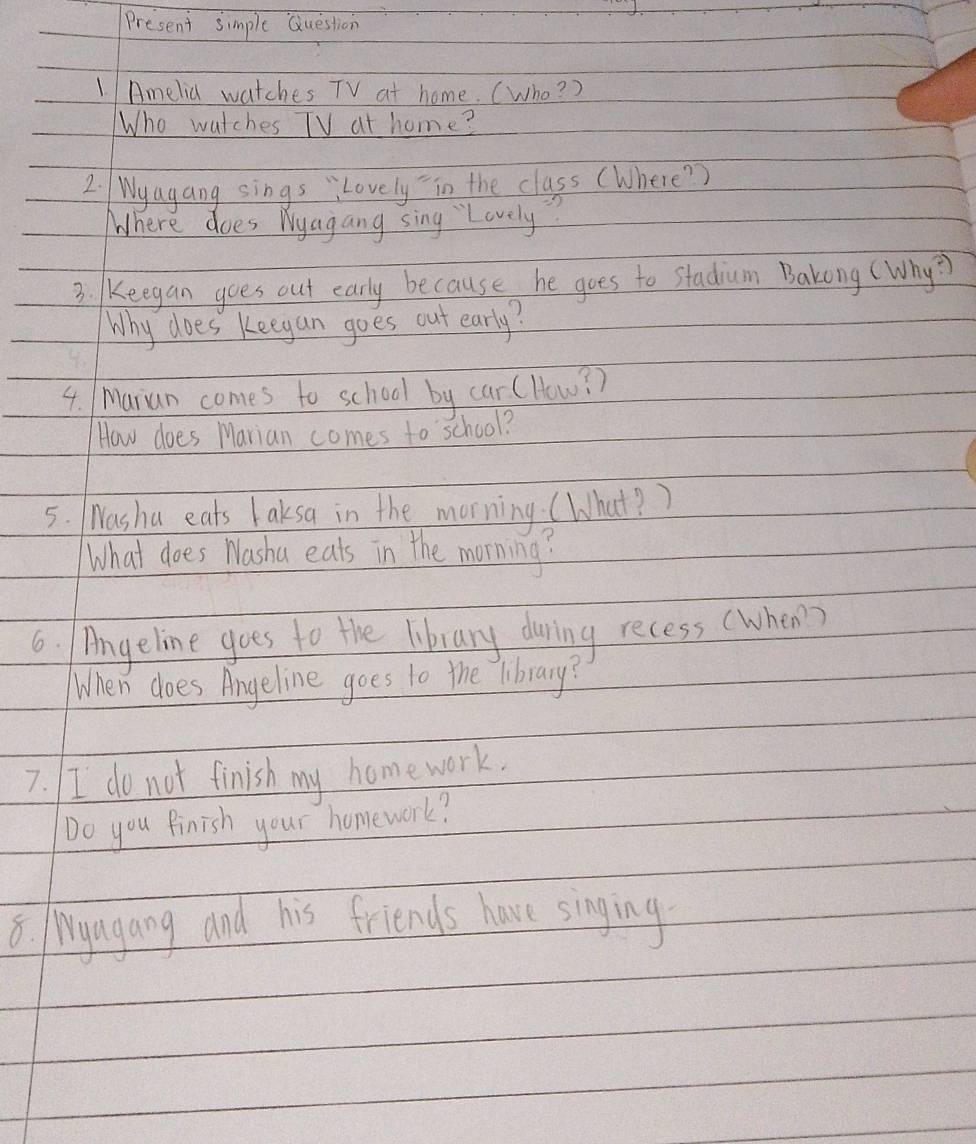 Present Simple Question
1. Amelia watches TV at home. (Who?)
Who watches TV at home?
2. Nyagang sings "Lovely" in the class (Where?)
Where does Nyagang sing "Lovely"?
3. Keegan goes out early because he goes to Stadium Bakong (Why?)
Why does Keegan goes out early?
4. Marian comes to school by car. (How?)
How does Marian comes to school?
5. Nasha eats Laksa in the morning. (What?)
What does Nasha eats in the morning?
6. Angeline goes to the library during recess (When?)
When does Angeline goes to the library?
7. I do not finish my homework.
Do you finish your homework?
8. Nyagang and his friends have singing.